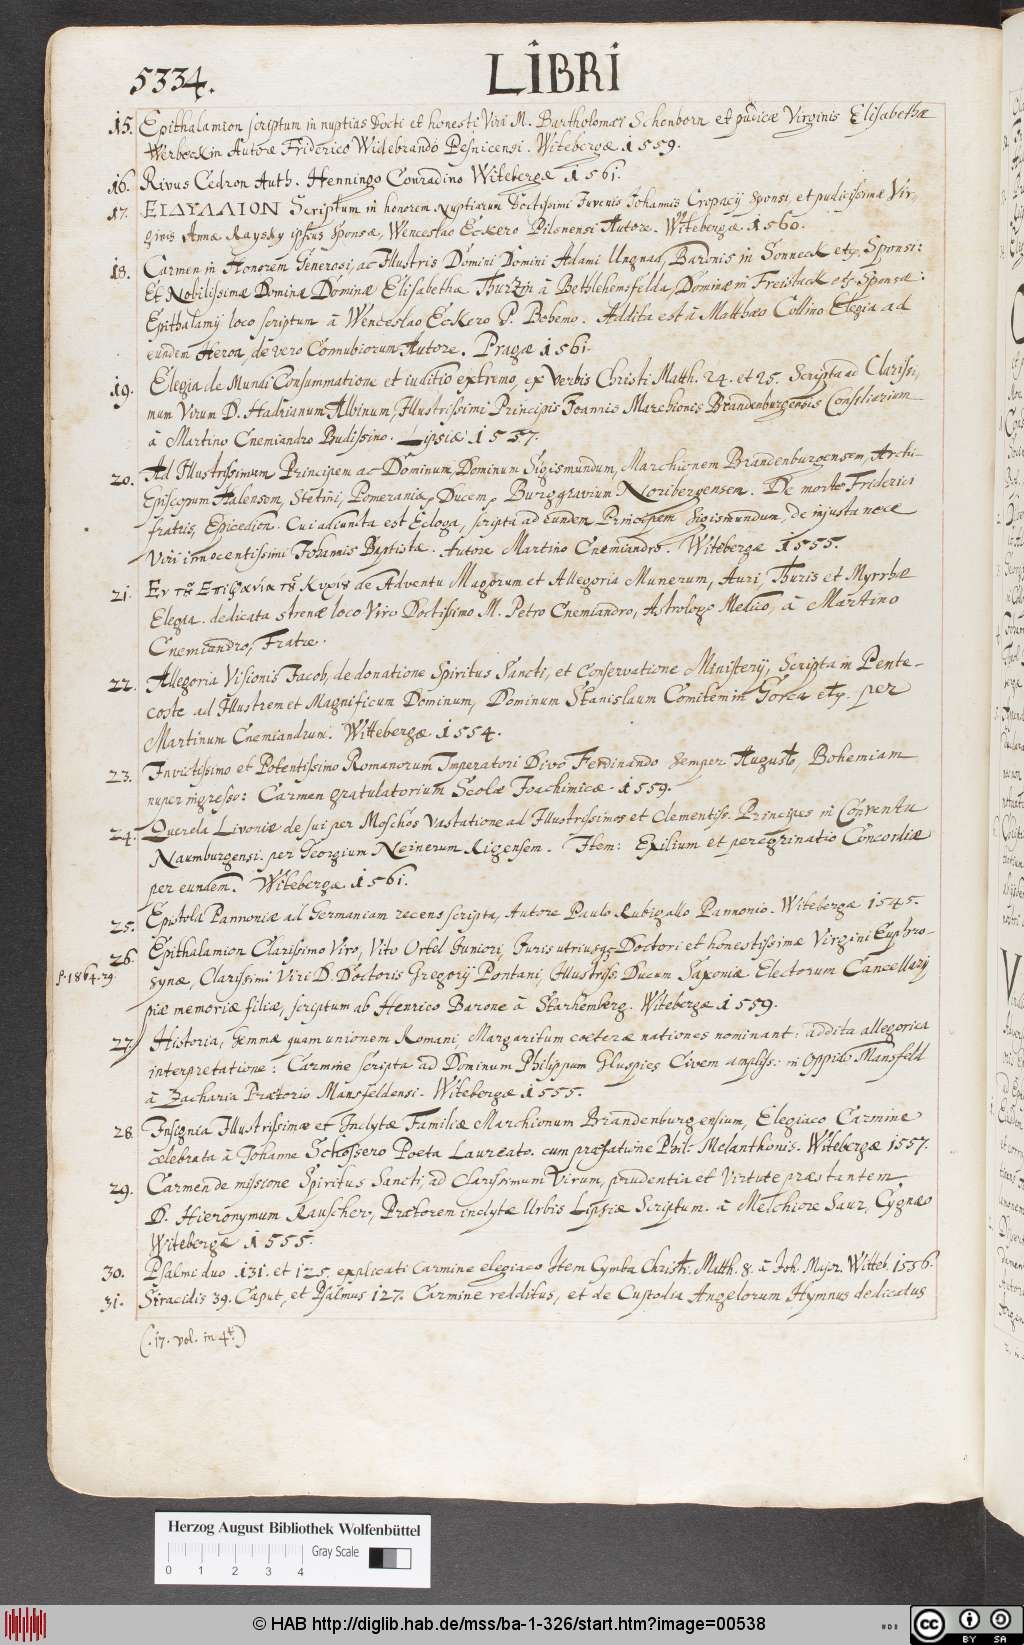 5334.
LIBRI
15. Epithalamion scriptum in nuptias docti et honesti Viri M. Bartholomæi Schonborn et pudicæ Virginis Elisabethæ
Werbeckin Autore Friderico Widebrando Pesnicensi. Witebergæ 1559.
16. Rivus Cedron Auth. Henningo Conradino Witebergæ 1561.
17. ΕΙΔΥΛΛΙΟΝ Scriptum in honorem Nuptiarum Doctissimi Juvenis Johannis Cropacij Sponsi, et pudicissimæ Vir-
ginis Annæ Raysky ipsius Sponsæ, Wenceslao Eckero Pilsnensi Autore. Witebergæ. 1560.
18. Carmen in Honorem Generosi, ac Illustris Domini Domini Adami Ungnad, Baronis in Sonneck etc. Sponsi:
Et Nobilissimæ Dominæ Dominæ Elisabethæ Thurzin à Bethlehemsfelda, Dominæ in Freistack etc. Sponsæ:
Epithalamij loco scriptum à Wenceslao Eckero P. Bohemo. Addita est à Matthæo Collino Elegia ad
eundem Heroa, de vero Connubiorum Autore. Pragæ 1561.
19. Elegia de Mundi Consummatione et iuditio extremo, ex verbis Christi Matth. 24. et 25. Scripta ad Clarissi,
mum Virum D. Hadrianum Albinum, Illustrissimi Principis Joannis Marchionis Brandenburgensis Consiliarium
à Martino Cnemiandro Budissino. Lipsiæ 1557.
20. Ad Illustrissimum Principem ac Dominum Dominum Sigismundum, Marchionem Brandenburgensem, Archi-
Episcopum Halensem, Stetini, Pomeraniæ, Ducem, Burggravium Noribergensem. De morte Friderici
fratris, Epicedion. Cui adiuncta est Ecloga, scripta ad eundem Principem Sigismundum, de injusta nece
Viri innocentissimi Johannis Baptistæ. Autore Martino Cnemiandro. Witebergæ 1555.
21. Εν τῇ Επιφανίᾳ τȣ̃ Κυρίȣ de Adventu Magorum et Allegoria Munerum, Auri, Thuris et Myrrhæ
Elegia. dedicata strenæ loco Viro Doctissimo M. Petro Cnemiandro, Astrologo Medico, à Martino
Cnemiandro, Fratre.
22. Allegoria Visionis Jacob, de donatione Spiritus Sancti, et Conservatione Ministerij, Scripta in Pente-
coste ad Illustrem et Magnificum Dominum, Dominum Stanislaum Comitem in Gorca etc. per
Martinum Cnemiandrum. Wittebergæ 1554.
23. Invictissimo et Potentissimo Romanorum Imperatori Divo Ferdinando Semper Augusto, Bohemiam
nuper ingresso: Carmen gratulatorium Scolæ Joachimicæ. 1559.
24. Querela Livoniæ de sui per Moschos Vastatione ad Illustrissimos et Clementiss. Principes in Conventu
Naumburgensi. per Georgium Neinerum Rigensem. Item: Exilium et peregrinatio Concordiæ
per eundem. Witebergæ 1561.
25. Epistola Pannoniæ ad Germaniam recens scripta, Autore Paulo Rubigallo Pannonio. Witebergæ 1545.
26. Epithalamion Clarissimo Viro, Vito Ortel Juniori, Juris utriusque Doctori et honestissimæ Virgini Euphro-
f. 1864. 29.
synæ, Clarissimi Viri D. Doctoris Gregorij Pontani, Illustriss. Ducum Saxoniæ Electorum Cancellarij
piæ memoriæ filiæ, scriptum ab Henrico Barone à Starhemberg. Witebergæ 1559.
27. Historia, Gemmæ quam unionem Romani, Margaritum cæteræ nationes nominant: addita allegorica
interpretatione: Carmine scripta ad Dominum Philippum Gluspies Civem ampliss: in Oppido Mansfeld
à Zacharia Prætorio Mansfeldensi. Witebergæ 1555.
28. Insignia Illustrissimæ et Inclytæ Familiæ Marchionum Brandenburgensium, Elegiaco Carmine
celebrata à Johanne Schossero Poeta Laureato. cum præfatione Phil. Melanthonis. Witebergæ 1557.
29. Carmen de missione Spiritus Sancti, ad Clarissimum Virum, prudentia et Virtute præstantem,
D. Hieronymum Rauscher, Prætorem inclytæ Urbis Lipsiæ Scriptum. à Melchiore Saur, Cygnæo
Witebergæ 1555.
30. Psalmi duo 131. et 125. explicati Carmine elegiaco Item Cymba Christi. Matth. 8. à Joh. Major. Witteb. 1556.
31. Siracidis 39. Caput, et Psalmus 127. Carmine redditus, et de Custodia Angelorum Hymnus dedicatus
(. 17. vol. in 4t.)
Herzog August Bibliothek Wolfenbüttel
Gray Scale
0 1 2 3 4
© HAB http://diglib.hab.de/mss/ba-1-326/start.htm?image=00538
cc BY SA